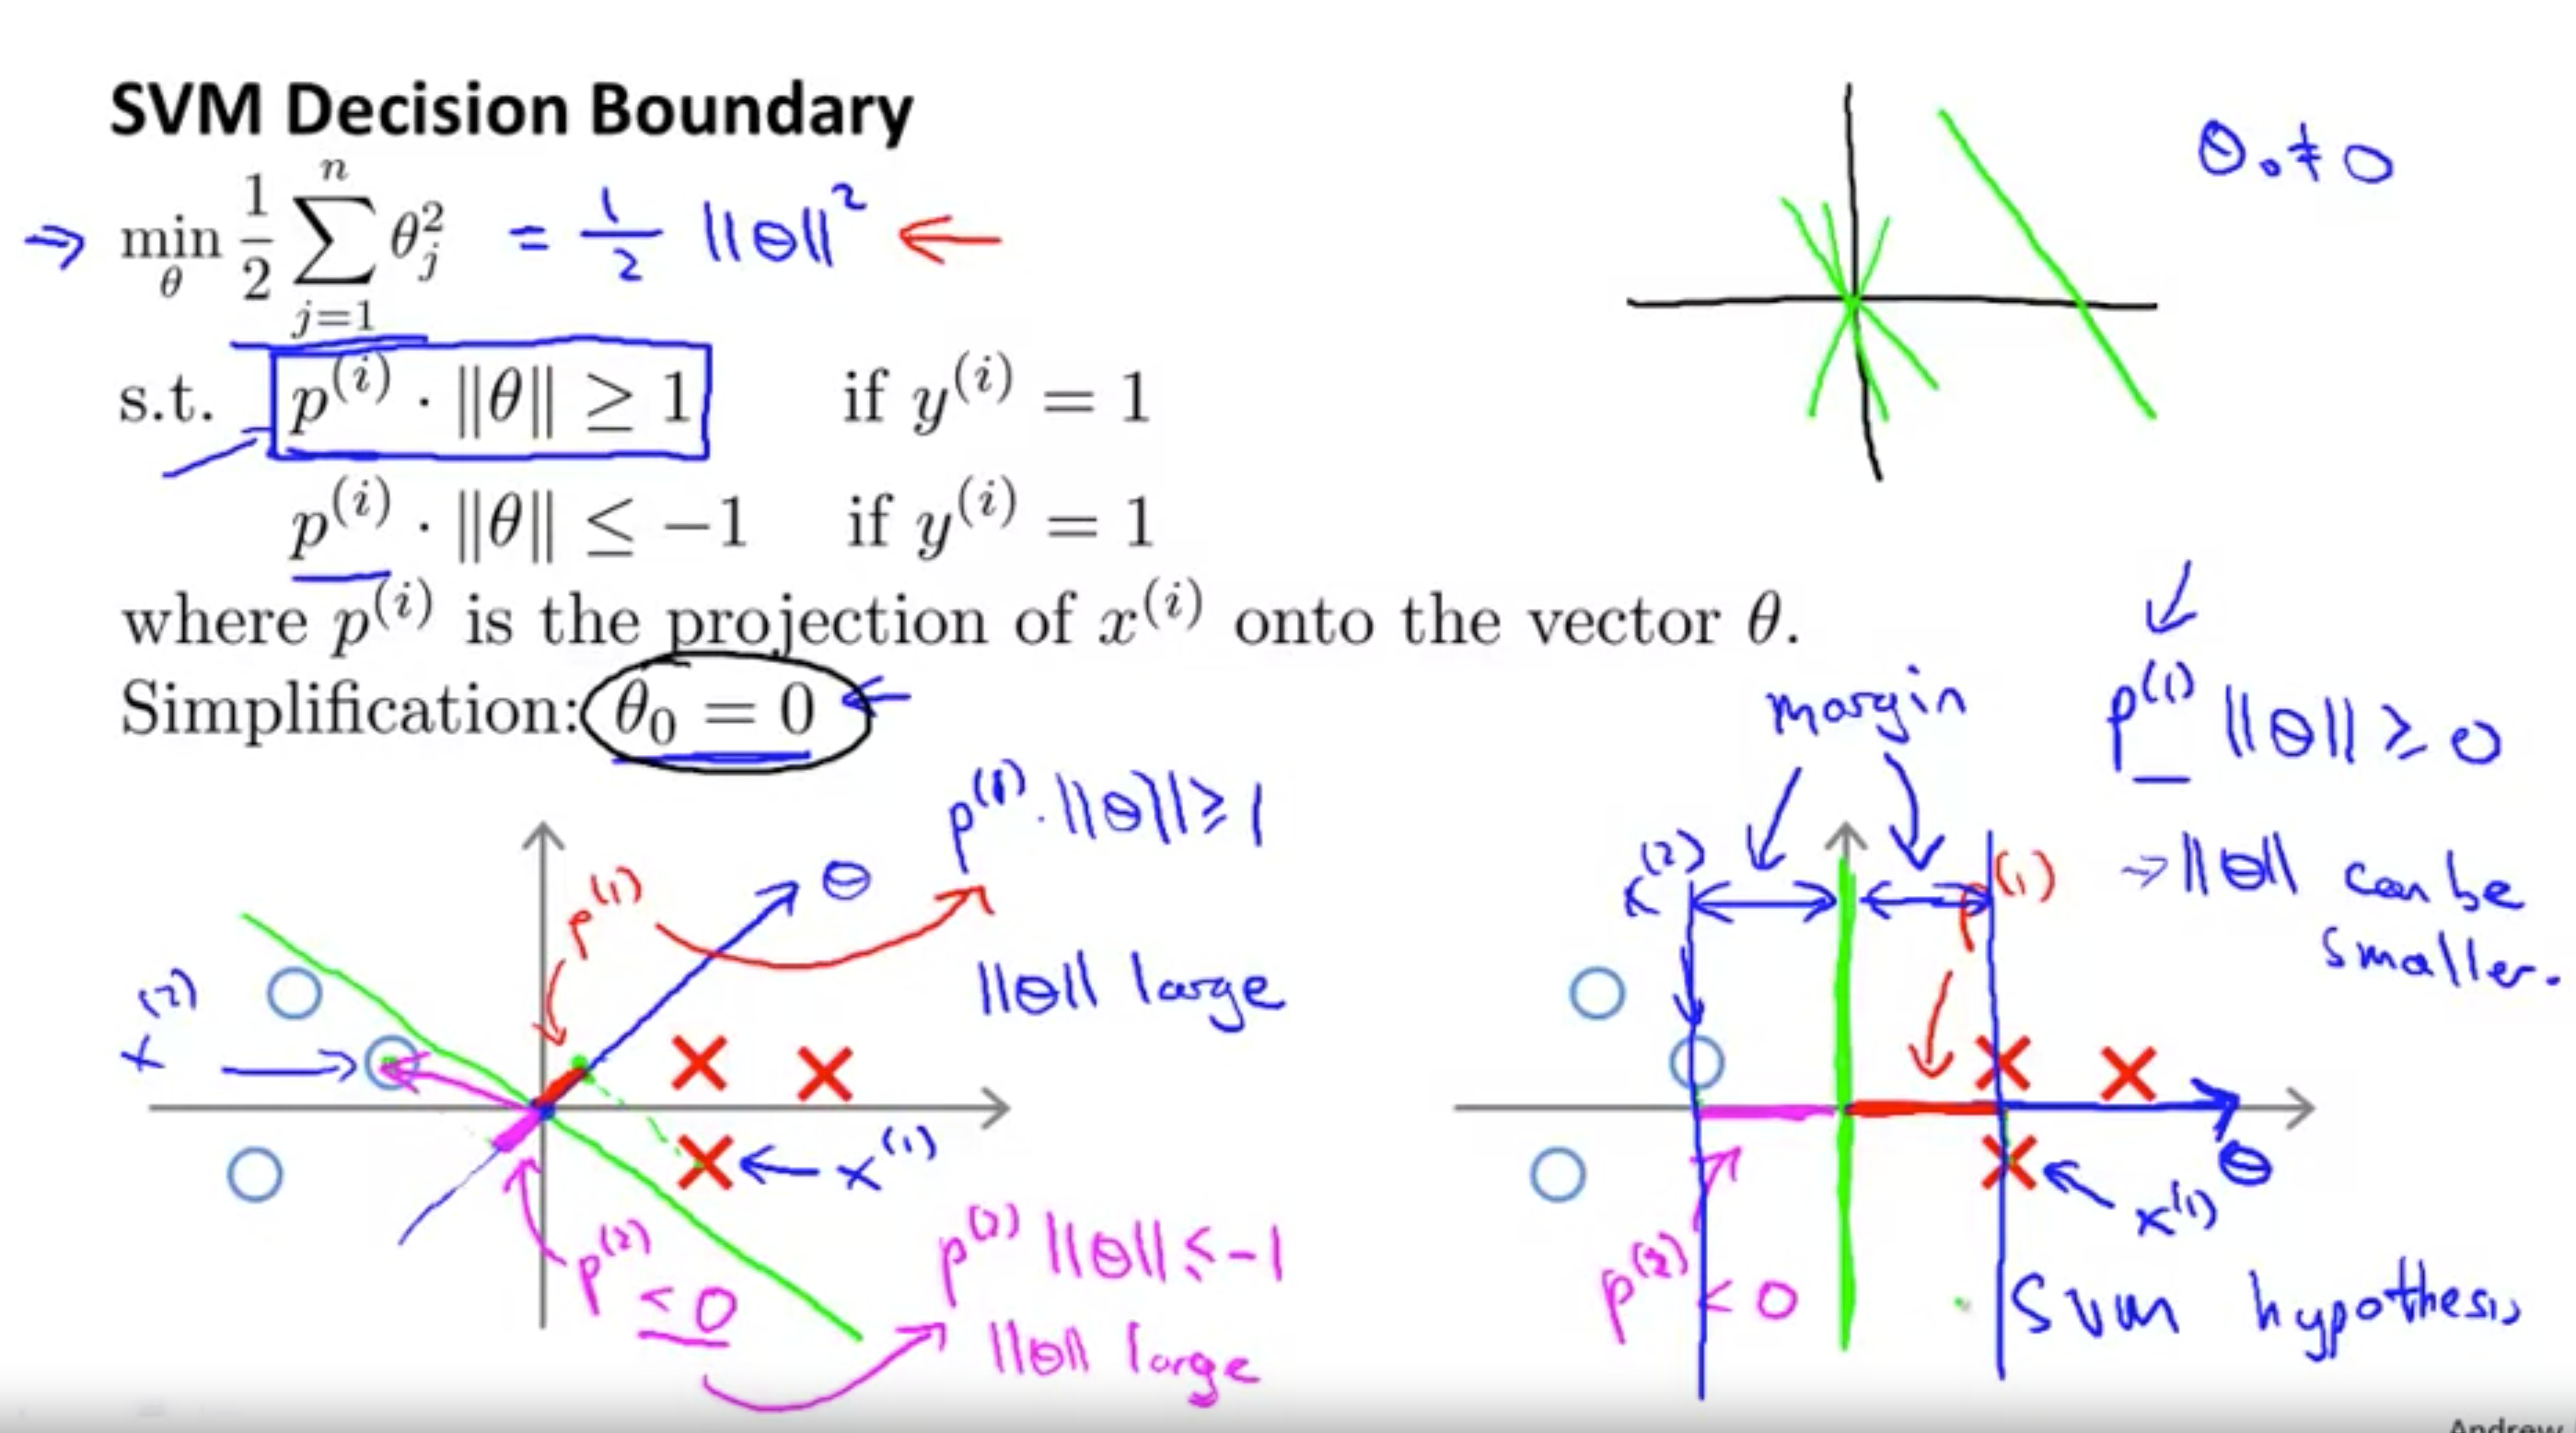 SVM Decision Boundary
⇒ min_θ 1/2 ∑_{j=1}^{n} θ_j^2 = 1/2 ||θ||^2 ←
θ₀ ≠ 0
s.t. p^(i) · ‖θ‖ ≥ 1 if y^(i) = 1
p^(i) · ‖θ‖ ≤ −1 if y^(i) = 1
where p^(i) is the projection of x^(i) onto the vector θ.
Simplification: θ₀ = 0 ←
p^(1) · ||θ|| ≥ 1
||θ|| large
θ
p^(1)
x^(2)
x^(1)
p^(2) < 0
p^(2) ||θ|| ≤ -1
||θ|| large
margin
p^(1) ||θ|| ≥ 0
→ ||θ|| can be
smaller.
x^(2)
p^(1)
θ
x^(1)
p^(2) < 0
SVM hypothesis
Andrew